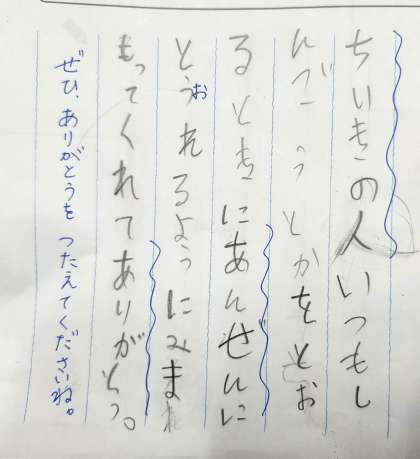 ちいきの人いつもし
んごうとかをとお
るときにあんぜんに
お
とうれるようにみま
もってくれてありがとう。
ぜひ、ありがとうを つたえてくださいね。